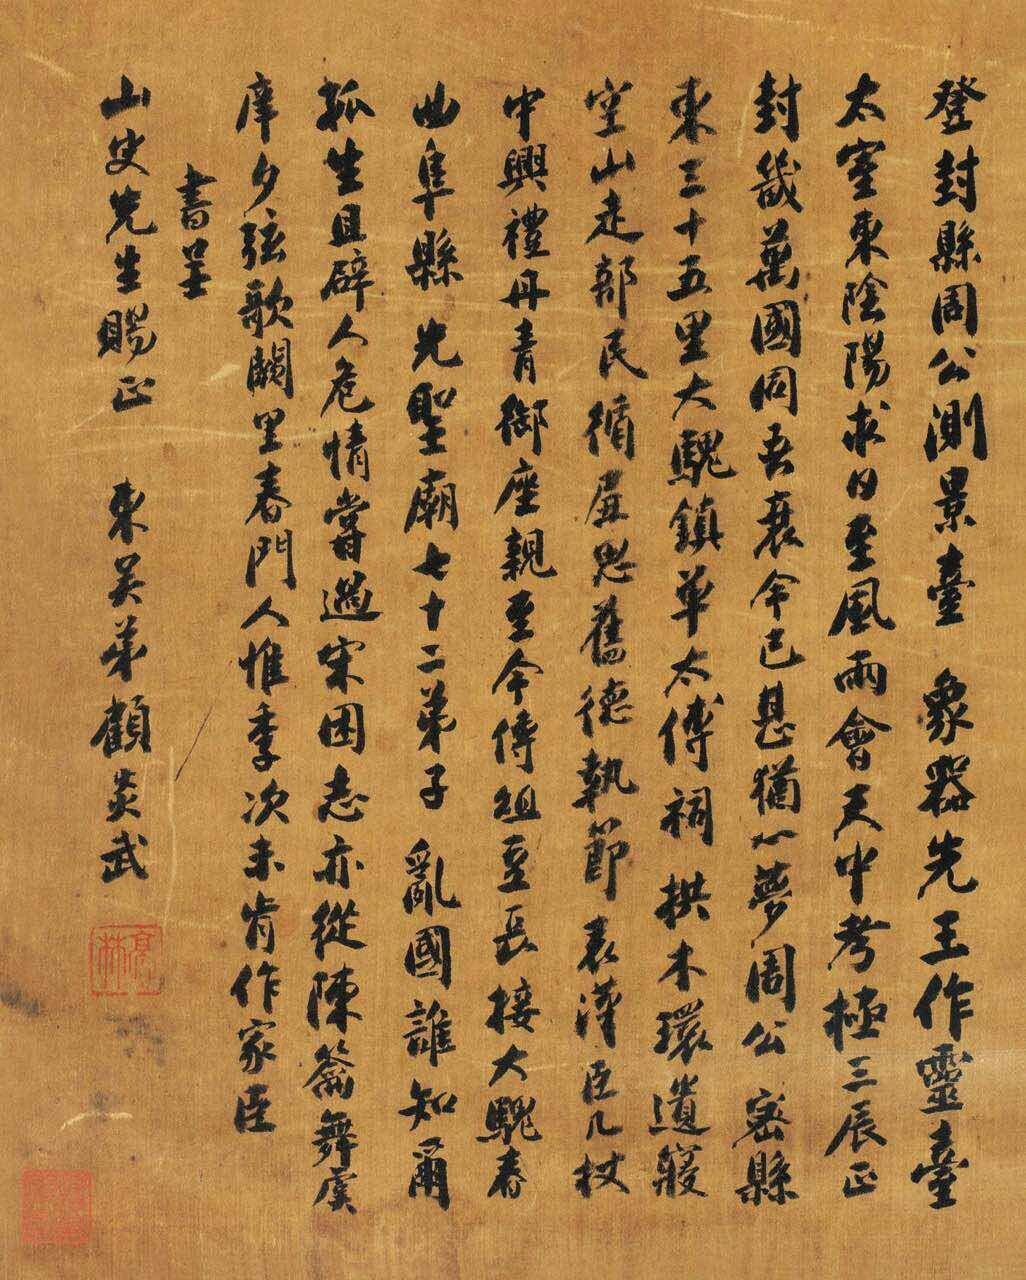 登封縣周公測景臺　象器先王作靈臺
太室東陰陽求日至風雨會天中考極三辰正
封畿萬國同吾衰今已甚猶一夢周公密縣
東三十五里大騩鎮卓太傅祠拱木環遺寢
空山走部民循良思舊德執節表漢臣几杖
中興禮丹青御座親至今傳俎豆長接大騩春
曲阜縣　先聖廟七十二弟子　亂國誰知爾
孤生且辟人危情嘗過宋困志亦從陳籥舞虞
庠夕弦歌闕里春門人惟季次未肯作家臣
書呈
山史先生賜正　東吳弟顧炎武
亭林